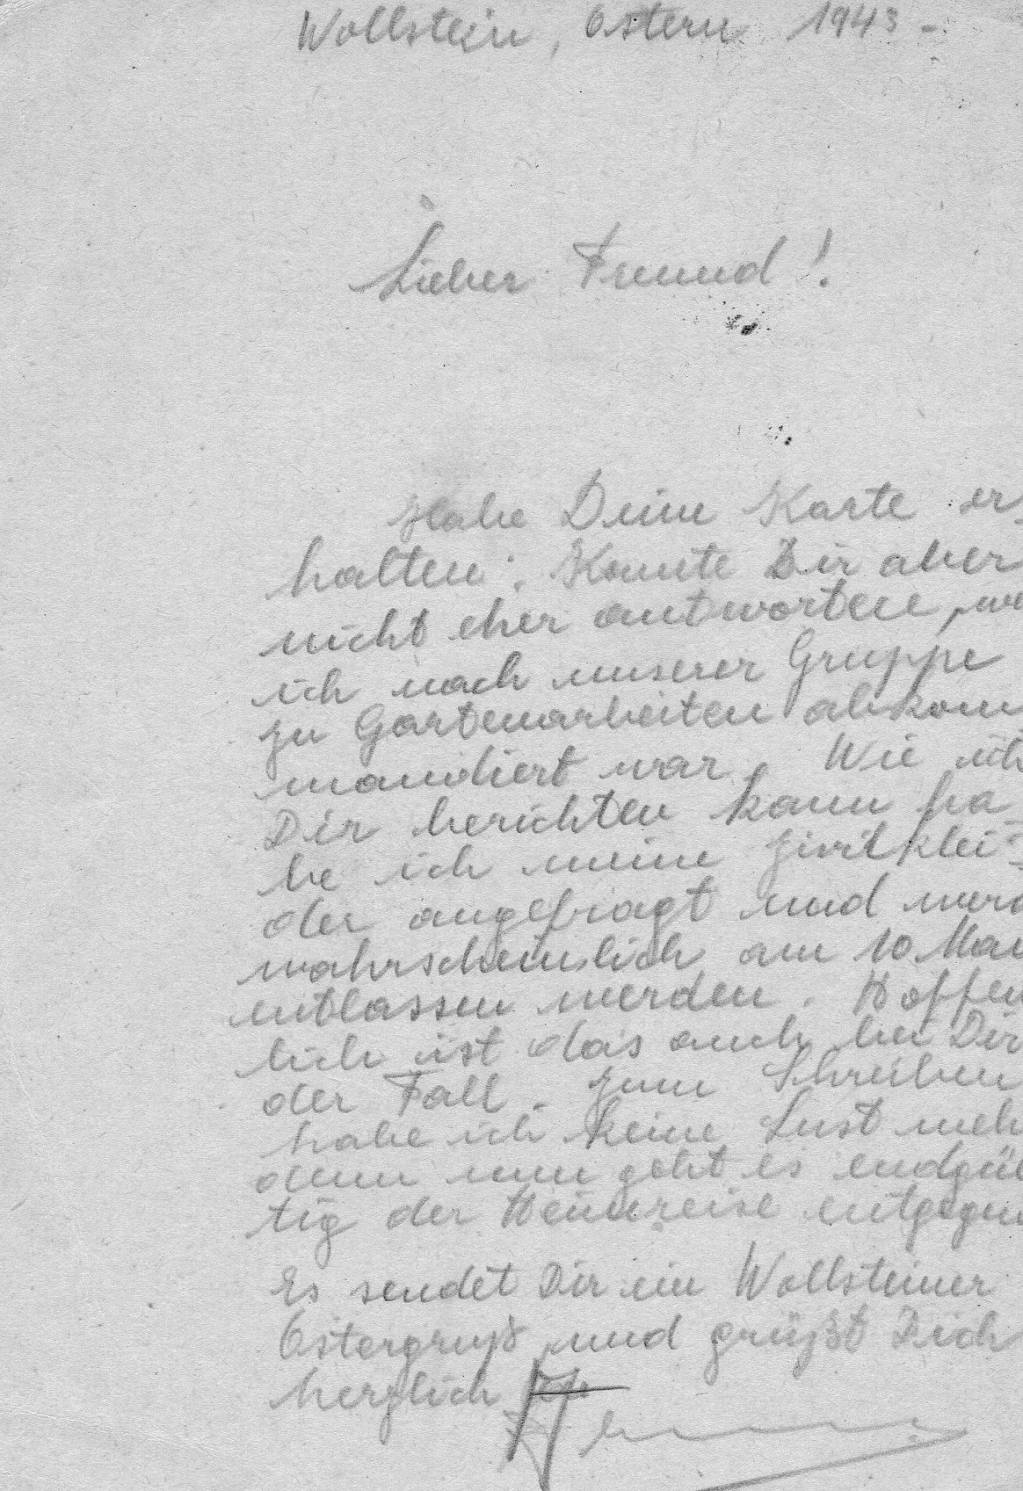 Wollstein, Ostern 1943 -
Lieber Freund!
Habe Deine Karte er-
halten. Konnte Dir aber
nicht eher antworten, we
ich nach unserer Gruppe
zu Gartenarbeiten abkom
mandiert war. Wie ich
Dir berichten kann ha-
be ich meine Zivilklei-
der angefragt und werd
wahrscheinlich am 10. Mai
entlassen werden. Hoffen
lich ist das auch bei Dir
der Fall. Zum Schreiben
habe ich keine Lust meh
denn nun geht es endgül
tig der Heimreise entgegen
Es sendet Dir ein Wollsteiner
Ostergruß und grüßt Dich
herzlich